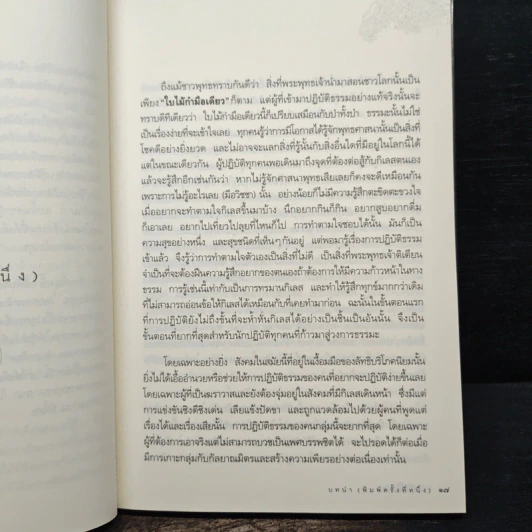 ถึงแม้ชาวพุทธทราบกันดีว่า สิ่งที่พระพุทธเจ้านำมาสอนชาวโลกนั้นเป็น
เพียง "ใบไม้กำมือเดียว" ก็ตาม แต่ผู้ที่เข้ามาปฏิบัติธรรมอย่างแท้จริงนั้นจะ
ทราบดีทีเดียวว่า ใบไม้กำมือเดียวนี้ก็เปรียบเสมือนกับป่าทั้งป่า ธรรมะนั้นไม่ใช่
เป็นเรื่องง่ายที่จะเข้าใจเลย ทุกคนรู้ว่าการมีโอกาสได้รู้จักพุทธศาสนานั้นเป็นสิ่งที่
โชคดีอย่างยิ่งยวด และไม่อาจจะแลกสิ่งที่รู้นั้นกับสิ่งอื่นใดที่มีอยู่ในโลกนี้ได้
แต่ในขณะเดียวกัน ผู้ปฏิบัติทุกคนพอเดินมาถึงจุดที่ต้องต่อสู้กับกิเลสตนเอง
แล้วจะรู้สึกอีกเช่นกันว่า หากไม่รู้จักศาสนาพุทธเสียเลยก็คงจะดีเหมือนกัน
เพราะการไม่รู้อะไรเลย (มีอวิชชา) นั้น อย่างน้อยก็ไม่มีความรู้สึกตะขิดตะขวงใจ
เมื่ออยากจะทำตามใจกิเลสขึ้นมาบ้าง นึกอยากกินก็กิน อยากสูบอยากดื่ม
ก็เอาเลย อยากไปเที่ยวไปลุยที่ไหนก็ไป การทำตามใจชอบได้นั้น มันก็เป็น
ความสุขอย่างหนึ่ง และสุขชนิดที่เห็นๆ กันอยู่ แต่พอมารู้เรื่องการปฏิบัติธรรม
เข้าแล้ว จึงรู้ว่าการทำตามใจตัวเองเป็นสิ่งที่ไม่ดี เป็นสิ่งที่พระพุทธเจ้าติเตียน
จำเป็นที่จะต้องฝืนความรู้สึกอยากของตนเองถ้าต้องการให้มีความก้าวหน้าในทาง
ธรรม การรู้เช่นนี้เท่ากับเป็นการทรมานกิเลส และทำให้รู้สึกทุกข์มากกว่าเดิม
ที่ไม่สามารถอ่อนข้อให้กิเลสได้เหมือนกับที่เคยทำมาก่อน ฉะนั้นในขั้นตอนแรก
ที่การปฏิบัติยังไม่ถึงขั้นที่จะห้ำหั่นกิเลสได้อย่างเป็นชิ้นเป็นอันนั้น จึงเป็น
ขั้นตอนที่ยากที่สุดสำหรับนักปฏิบัติทุกคนที่ก้าวมาสู่วงการธรรมะ
โดยเฉพาะอย่างยิ่ง สังคมในสมัยนี้ที่อยู่ในเงื้อมมือของลัทธิบริโภคนิยมนั้น
ยิ่งไม่ได้เอื้ออำนวยหรือช่วยให้การปฏิบัติธรรมของคนที่อยากจะปฏิบัติง่ายขึ้นเลย
โดยเฉพาะผู้ที่เป็นฆราวาสและยังต้องจุ่มอยู่ในสังคมที่มีกิเลสเดินหน้า ซึ่งมีแต่
การแข่งขันชิงดีชิงเด่น เลียแข้งปัดขา และถูกแวดล้อมไปด้วยผู้คนที่พูดแต่
เรื่องได้และเรื่องเสียนั้น การปฏิบัติธรรมของคนกลุ่มนี้จะยากที่สุด โดยเฉพาะ
ผู้ที่ต้องการเอาจริงแต่ไม่สามารถบวชเป็นเพศบรรพชิตได้ จะไปรอดได้ก็ต่อเมื่อ
มีการเกาะกลุ่มกับกัลยาณมิตรและสร้างความเพียรอย่างต่อเนื่องเท่านั้น
บทนำ (พิมพ์ครั้งที่หนึ่ง) ๑๗
นึ่ง)